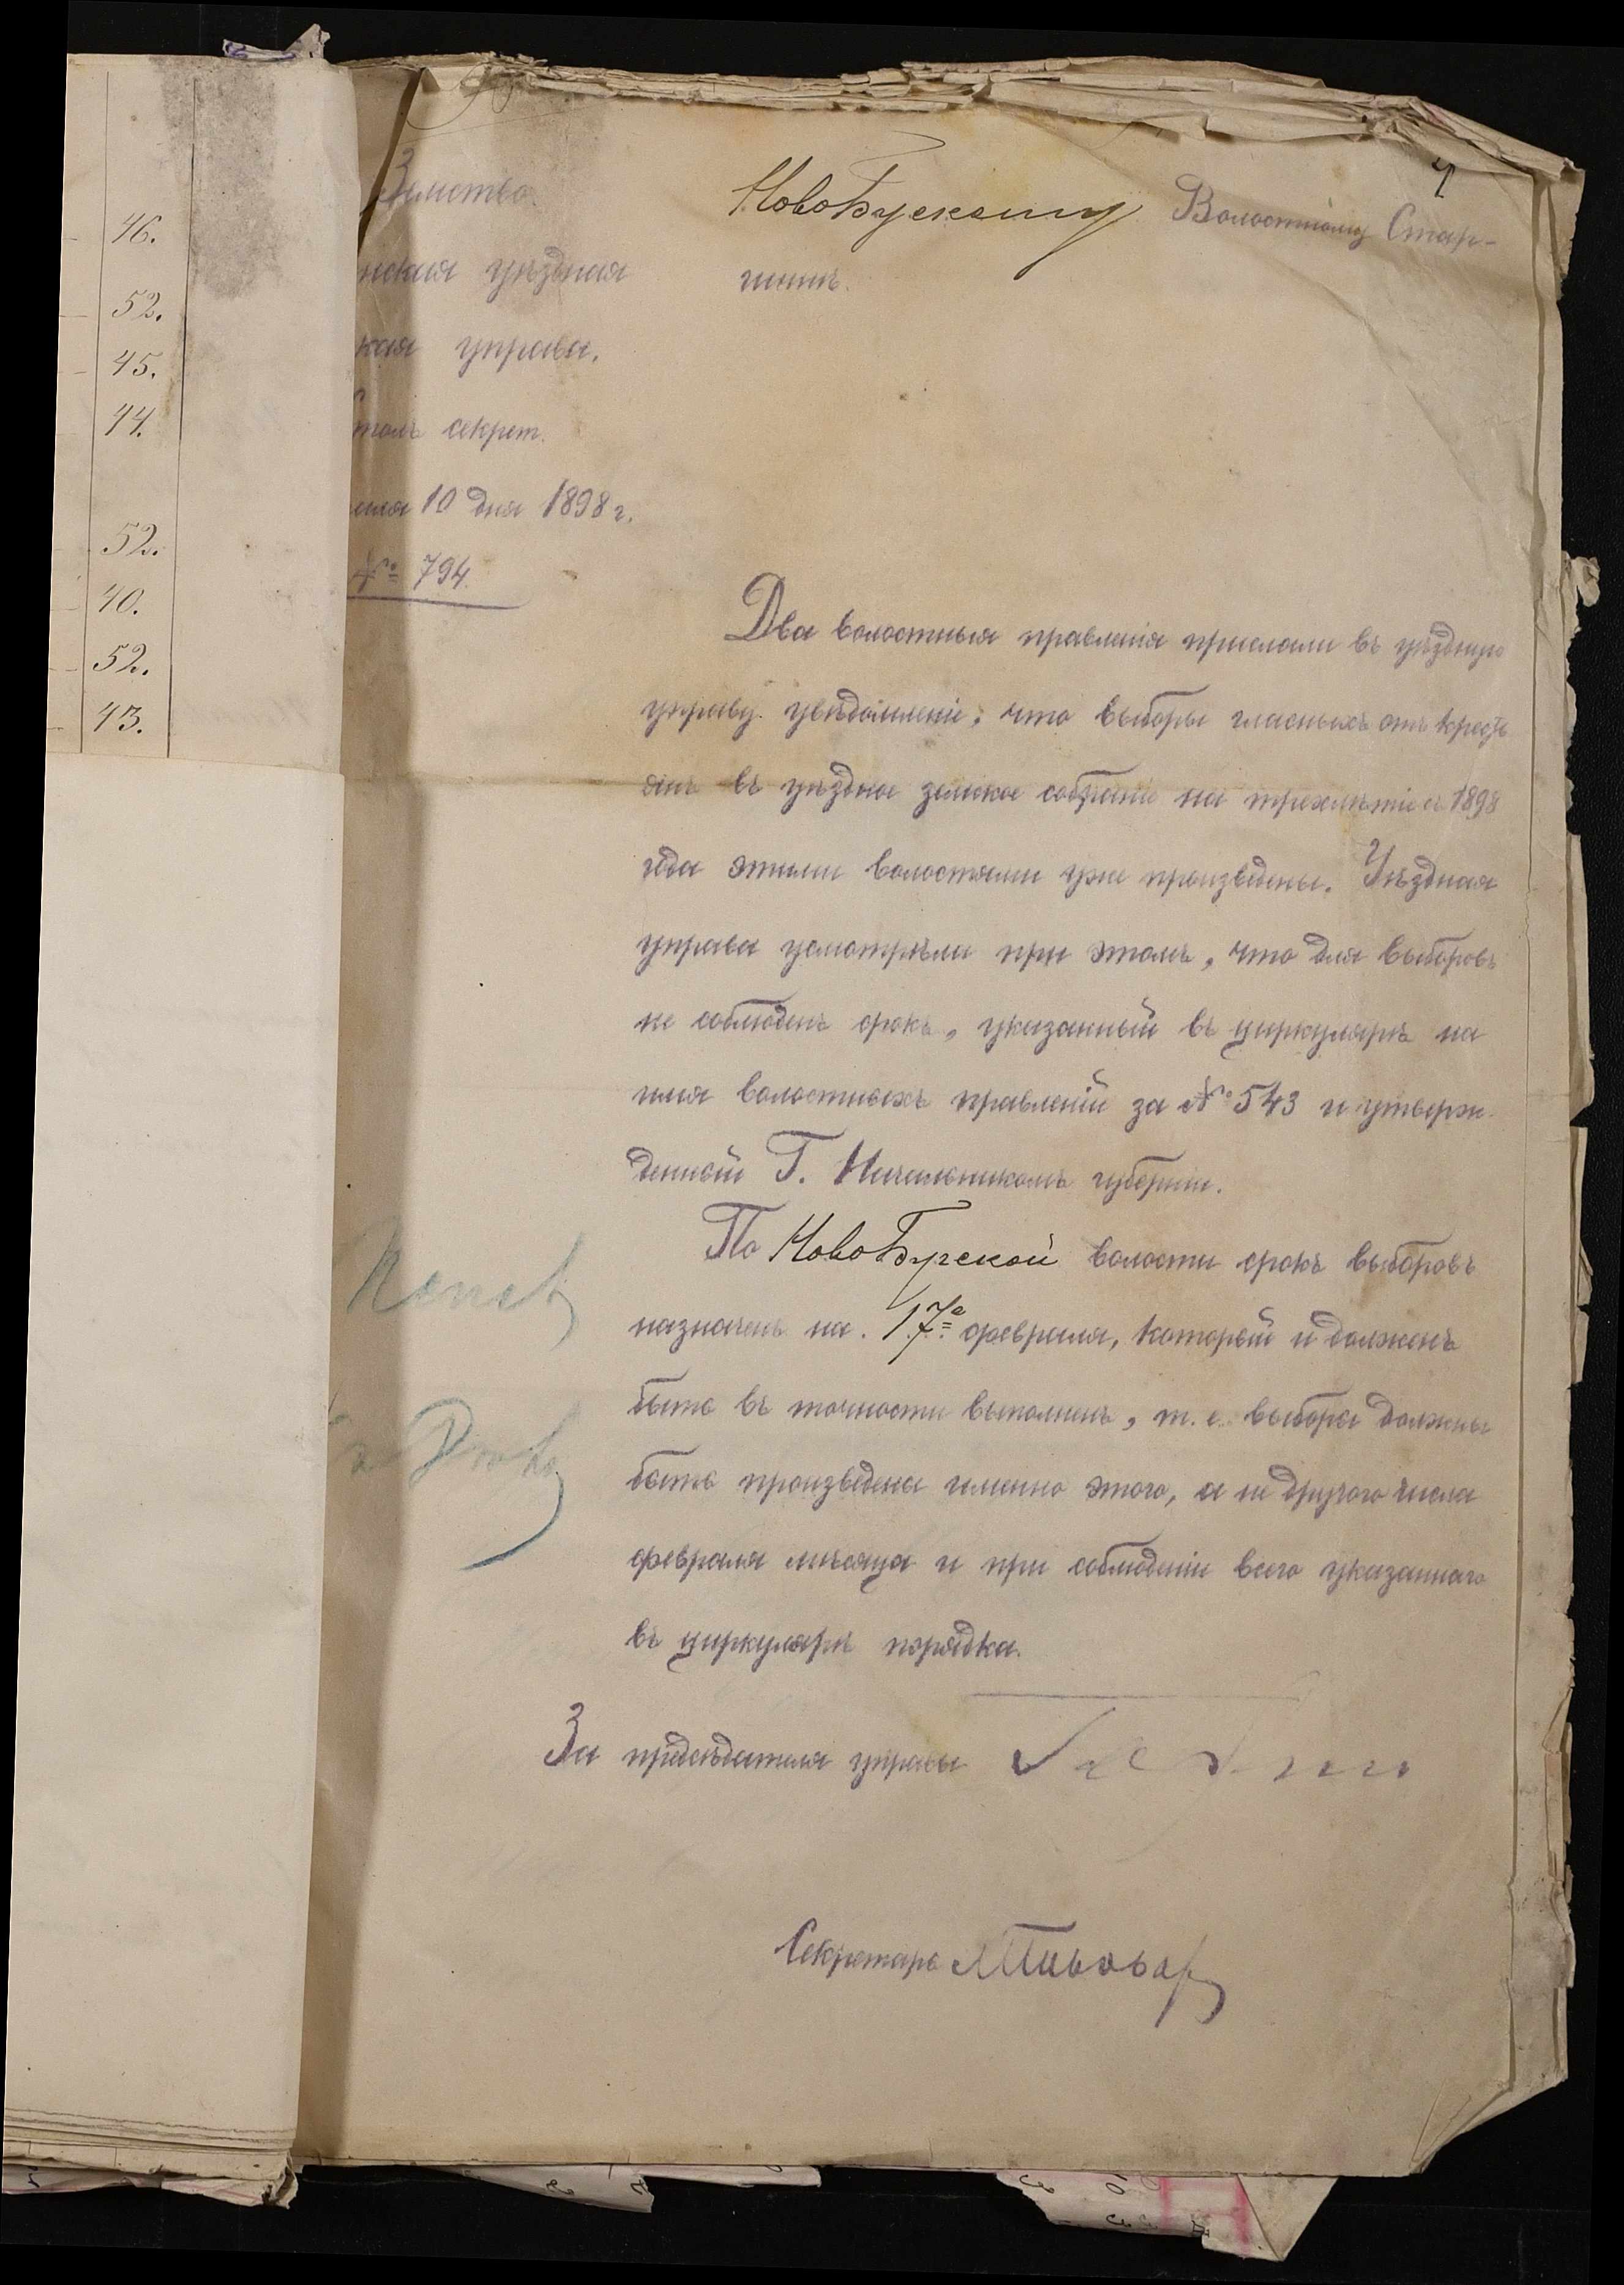 46.
52.
45.
44.
52.
40.
52.
43.
4
Земство
нская уѣздная
кая управа.
столъ секрет.
10 дня 1898 г.
№ 794.
НовоБугскому Волостному Стар-
шинѣ.
Два волостныя правленія прислали въ уѣздную
управу увѣдомленіе, что выборы гласныхъ отъ кресть
янъ въ уѣздное земское собраніе на трехлѣтіе съ 1898
года этими волостями уже произведены. Уѣздная
управа усмотрѣла при этомъ, что для выборовъ
не соблюденъ срокъ, указанный въ циркулярѣ на
имя волостныхъ правленій за № 543 и утверж-
денный Г. Начальникомъ губерніи.
По НовоБугской волости срокъ выборовъ
назначенъ на 17е февраля, который и долженъ
быть въ точности выполненъ, т. е. выборы должны
быть произведены именно этого, а не другого числа
февраля мѣсяца и при соблюденіи всего указаннаго
въ циркулярѣ порядка.
За предсѣдателя управы
Секретарь Пивовар